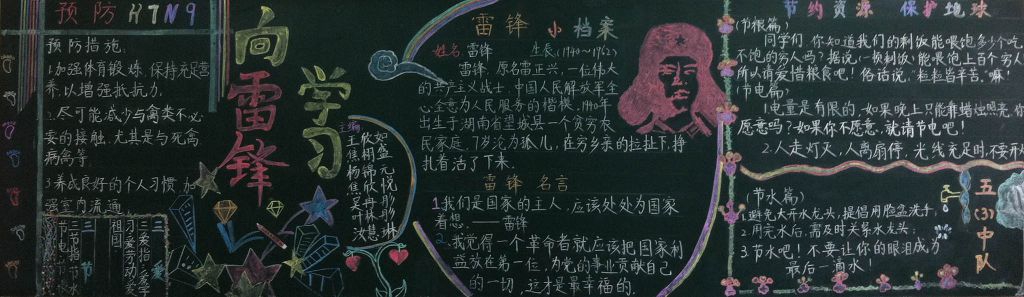 预防H7N9
预防措施:
1.加强体育锻炼,保持充足营
养,以增强抵抗力.
2.尽可能减少与禽类不必
要的接触,尤其是与死禽
病禽等.
3.养成良好的个人习惯,加
强室内流通.
三爱
三爱指:爱学
习爱劳动爱
祖国
三节
三节指:节水
节电
向雷锋
学习
雷锋小档案
姓名:雷锋 生卒(1940~1962)
雷锋,原名雷正兴,一位伟大
的共产主义战士,中国人民解放军全
心全意为人民服务的楷模.1940年
出生于湖南省望城县一个贫穷农
民家庭,7岁沦为孤儿,在穷乡亲的拉扯下,挣
扎着活了下来.
雷锋名言
1.我们是国家的主人,应该处处为国家
着想.——雷锋
2.我觉得一个革命者就应该把国家利
益放在第一位,为党的事业贡献自己
的一切,这才是最幸福的.
节约资源 保护地球
(节粮篇)
同学们,你知道我们的剩饭能喂饱多少个吃
不饱的穷人吗?据说,一顿剩饭能喂饱上百个穷人
所以请爱惜粮食吧!俗话说,“粒粒皆辛苦”嘛!
(节电篇)
1.电量是有限的.如果晚上只能靠蜡烛照亮,你
愿意吗?如果你不愿意,就请节电吧!
2.人走灯灭,人离扇停,光线充足时,不要开灯
(节水篇)
1.避免大开水龙头,提倡用脸盆洗手;
2.用完水后,需及时关紧水龙头;
3.节水吧!不要让你的眼泪成为
最后一滴水!
五(3)中队